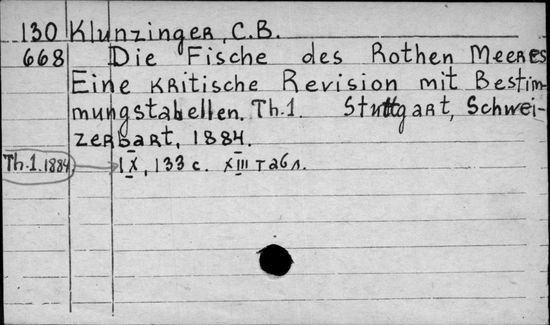 130 Klunzinger, C.B.
668 Die Fische des Rothen Meeres
Eine kritische Revision mit Bestim-
mungstabellen. Th.1. Stuttgart, Schwei-
zerbart, 1884.
Th.1.1884 IX, 133 с. XIII табл.